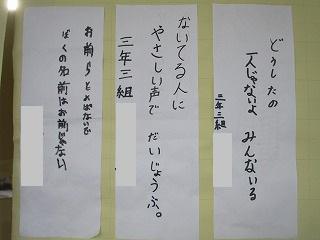 どうしたの
一人じゃないよ みんないる
三年二組
ないてる人に
やさしい声で だいじょうぶ。
三年三組
お前らとよばないで
ぼくの名前はお前じゃない